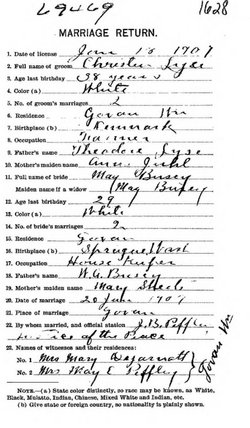 L9469 1628
MARRIAGE RETURN.
1. Date of license June 18 1907
2. Full name of groom Christen Lyse
3. Age last birthday 38 years
4. Color (a) White
5. No. of groom's marriages 2
6. Residence Govan Wn
7. Birthplace (b) Denmark
8. Occupation Farmer
9. Father's name Theodore Lyse
10. Mother's maiden name Ann Juhl
11. Full name of bride May Busey
Maiden name if a widow (May Busey
12. Age last birthday 29
13. Color (a) White
14. No. of bride's marriages 2
15. Residence Govan
16. Birthplace (b) Sprague Wash
17. Occupation House Keeper
18. Father's name W. G. Busey
19. Mother's maiden name Mary Sheets
20. Date of marriage 20 June 1907
21. Place of marriage Govan
22. By whom married, and official station J. B. Piffley
Justice of the Peace
23. Names of witnesses and their residences:
No. 1 Mrs Mary Dejarnatt
No. 2 Mrs May E Piffley
Govan Wn
NOTE.—(a) State color distinctly, so race may be known, as White,
Black, Mulatto, Indian, Chinese, Mixed White and Indian, etc.
(b) Give state or foreign country, so nationality is plainly shown.